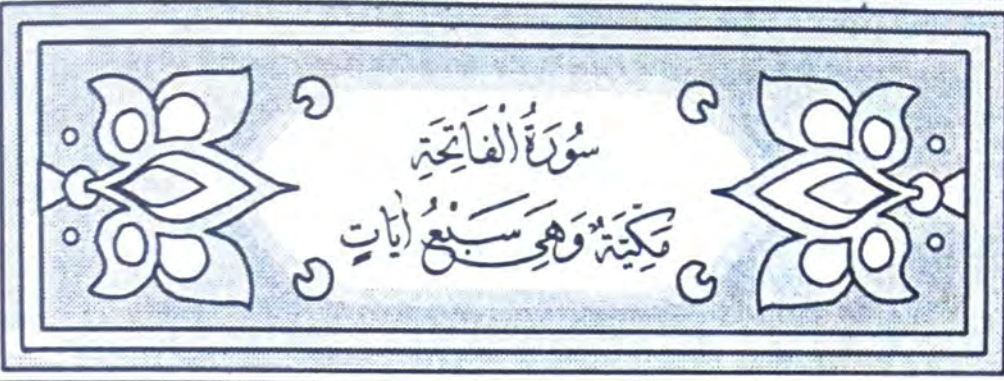 سُورَةُ الْفَاتِحَةِ
مَكِّيَّةٌ وَهِيَ سَبْعُ اٰيَاتٍ